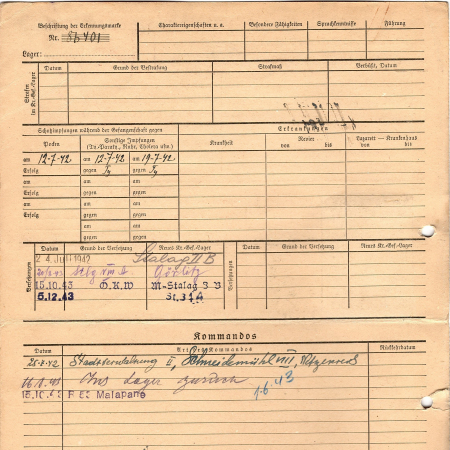 Beschriftung der Erkennungsmarke
Nr.
Lager:
Charaktereigenschaften u. a. Besondere Fähigkeiten Sprachkenntnisse Führung
Strafen im Kr.-Gef.-Lager
Datum Grund der Bestrafung Strafmaß Verbüßt, Datum
Schutzimpfungen während der Gefangenschaft gegen
Pocken
Sonstige Impfungen (Ty.-Paraty., Ruhr, Cholera usw.)
Erkrankungen
Krankheit Revier Lazarett — Krankenhaus
von bis von bis
am 12.7.42 am 12.7.42 am 19.7.42
Erfolg gegen Ty gegen Ty
am am am
Erfolg gegen gegen
am am am
Erfolg gegen gegen
am am am
Erfolg gegen gegen
Versetzungen
Datum Grund der Versetzung Neues Kr.-Gef.-Lager Datum Grund der Versetzung Neues Kr.-Gef.-Lager
24. Juli 1942 Stalag II B
Stlg VIII Görlitz
15.10.43 M-Stalag
5.12.43
Kommandos
Datum Art des Kommandos Rückkehrdatum
II, Schneidemühl
Ins Lager zurück 1.6.43
15.10.43 Malapane